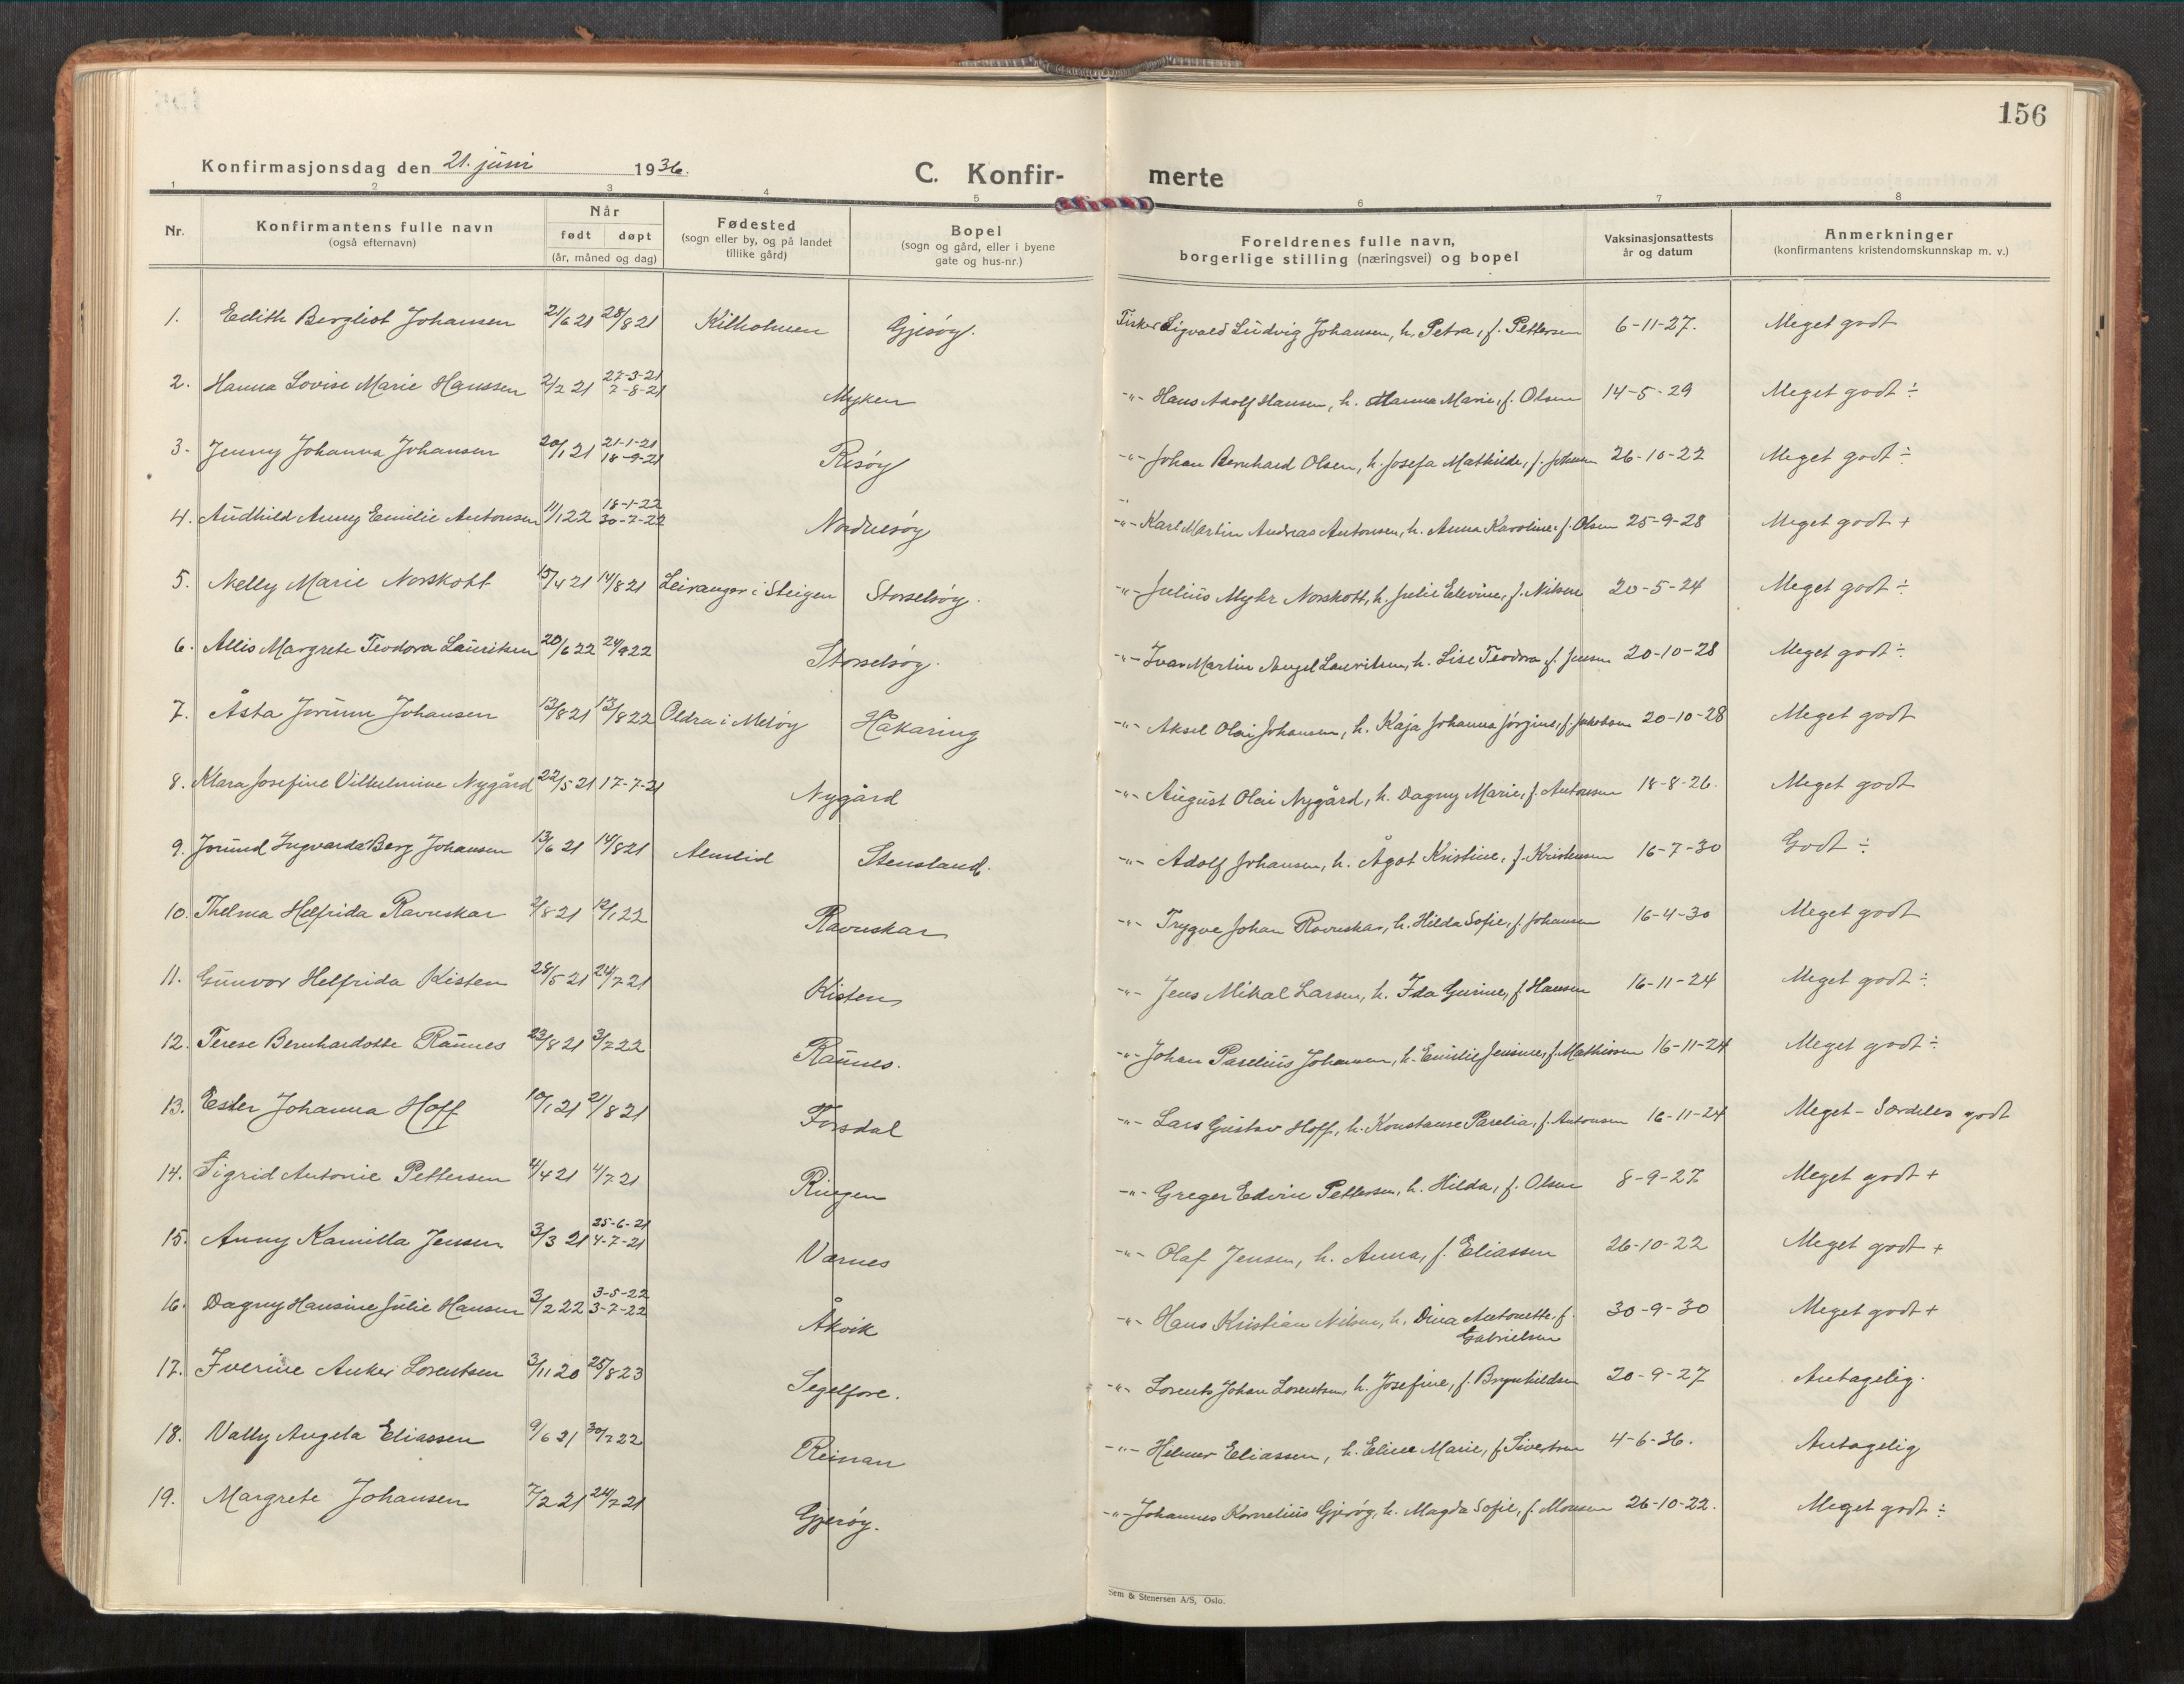 156
Konfirmasjonsdag den 21. juni 1936.
C. Konfir- merte
1 2 3 4 5 6 7 8
Nr. Konfirmantens fulle navn (også efternavn) Når født døpt (år, måned og dag) Fødested (sogn eller by, og på landet tillike gård) Bopel (sogn og gård, eller i byene gate og hus-nr.) Foreldrenes fulle navn, borgerlige stilling (næringsvei) og bopel Vaksinasjonsattests år og datum Anmerkninger (konfirmantens kristendomskunnskap m. v.)
1. Edith Bergliot Johansen 21/6 21 28/8 21 Kilholmen Gjerøy. Fisker Sigvald Ludvig Johansen, h. Petra, f. Pettersen 6-11-27. Meget godt
2. Hanna Lovise Marie Hanssen 2/2 21 27-3-21 7-8-21 Myken -"- Hans Adolf Hansen, h. Hanna Marie, f. Olsen 14-5-29 Meget godt ÷
3. Jenny Johanna Johansen 20/1 21 21-1-21 18-9-21 Risøy -"- Johan Bernhard Olsen, h. Josefa Mathilde, f. Johnsen 26-10-22 Meget godt ÷
4. Audhild Anny Emilie Antonsen 11/1 22 18-1-22 30-7-22 Nordnesøy -"- Karl Martin Andreas Antonsen, h. Anna Karoline, f. Olsen 25-9-28 Meget godt +
5. Nelly Marie Norskott 15/4 21 14/8 21 Leiranger i Steigen Storselsøy. -"- Julius Myhr Norskott, h. Julie Elevine, f. Nilsen 20-5-24 Meget godt ÷
6. Allis Margrete Teodora Lauritsen 20/6 22 24/9 22 Storselsøy. -"- Ivar Martin Angel Lauritsen, h. Lise Teodora, f. Jensen 20-10-28 Meget godt ÷
7. Åsta Jorunn Johansen 13/8 21 13/8 22 Oldra i Meløy Håkaring -"- Aksel Olai Johansen, h. Kaja Johanna Jørgine, f. Jakobsen 20-10-28 Meget godt
8. Klara Josefine Vilhelmine Nygård 22/5 21 17-7-21 Nygård -"- August Olai Nygård, h. Dagny Marie, f. Antonsen 18-8-26. Meget godt
9. Jorund Ingvarda Berg Johansen 13/6 21 14/8 21 Almlid Stensland. -"- Adolf Johansen, h. Ågot Kristine, f. Kristensen 16-7-30 Godt ÷
10. Thelma Helfrida Ravnskar 2/8 21 12/1 22 Ravnskar -"- Trygve Johan Ravnskar, h. Hilda Sofie, f. Johansen 16-4-30 Meget godt
11. Gunvor Helfrida Kisten 28/5 21 24/7 21 Kisten -"- Jens Mikal Larsen, h. Ida Gurine, f. Hansen 16-11-24 Meget godt ÷
12. Terese Bernhardotte Raunes 23/8 21 3/7 22 Raunes. -"- Johan Parelius Johansen, h. Emilie Jensine, f. Mathissen 16-11-24 Meget godt ÷
13. Ester Johanna Hoff 10/1 21 21/8 21 Forsdal -"- Lars Gustav Hoff, h. Konstanse Parelia, f. Antonsen 16-11-24 Meget - Særdeles godt
14. Sigrid Antonie Pettersen 4/4 21 4/7 21 Ringen -"- Greger Edvin Pettersen, h. Hilda, f. Olsen 8-9-27 Meget godt +
15. Anny Kamilla Jensen 3/3 21 25-6-21 4-7-21 Værnes -"- Olaf Jensen, h. Anna, f. Eliassen 26-10-22 Meget godt +
16. Dagny Hansine Julie Hansen 3/2 22 3-5-22 3-7-22 Åkvik -"- Hans Kristian Nilsen, h. Dina Antonette, f. Gabrielsen 30-9-30 Meget godt +
17. Iverine Anker Lorentsen 3/11 20 25/8 23 Segelfore. -"- Lorents Johan Lorentsen, h. Josefine, f. Brynhildsen 20-9-27 Antagelig.
18. Vally Angela Eliassen 9/6 21 30/7 22 Reinan -"- Helmer Eliassen, h. Eline Marie, f. Sivertsen 4-6-36. Antagelig
19. Margrete Johansen 7/2 21 24/7 21 Gjerøy. -"- Johannes Kornelius Gjerøy, h. Magda Sofie, f. Monsen 26-10-22. Meget godt ÷
Sem & Stenersen A/S, Oslo.